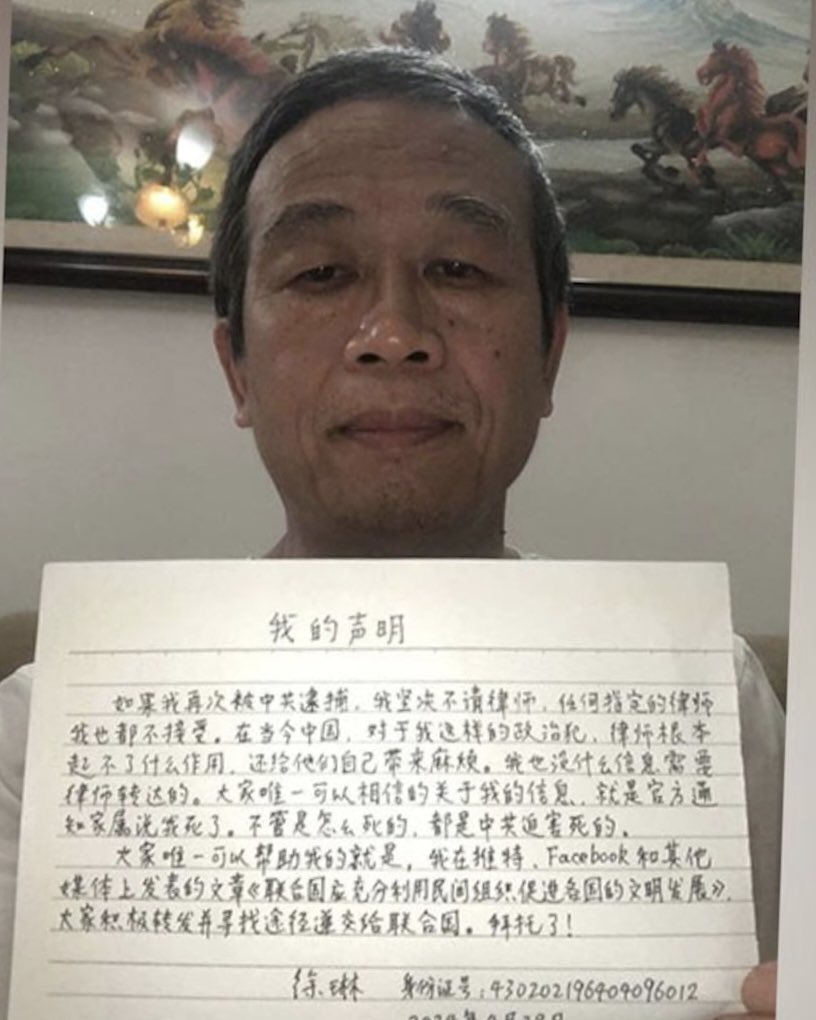 我的声明
如果我再次被中共逮捕，我坚决不请律师，任何指定的律师
我也都不接受。在当今中国，对于我这样的政治犯，律师根本
起不了什么作用，还给他们自己带来麻烦。我也没什么信息需要
律师转达的。大家唯一可以相信的关于我的信息，就是官方通
知家属说我死了。不管是怎么死的，都是中共迫害死的。
大家唯一可以帮助我的就是，我在推特、Facebook和其他
媒体上发表的文章《联合国应充分利用民间组织促进各国的文明发展》，
大家积极转发并寻找途径递交给联合国。拜托了！
徐琳 身份证号：430202196404096012